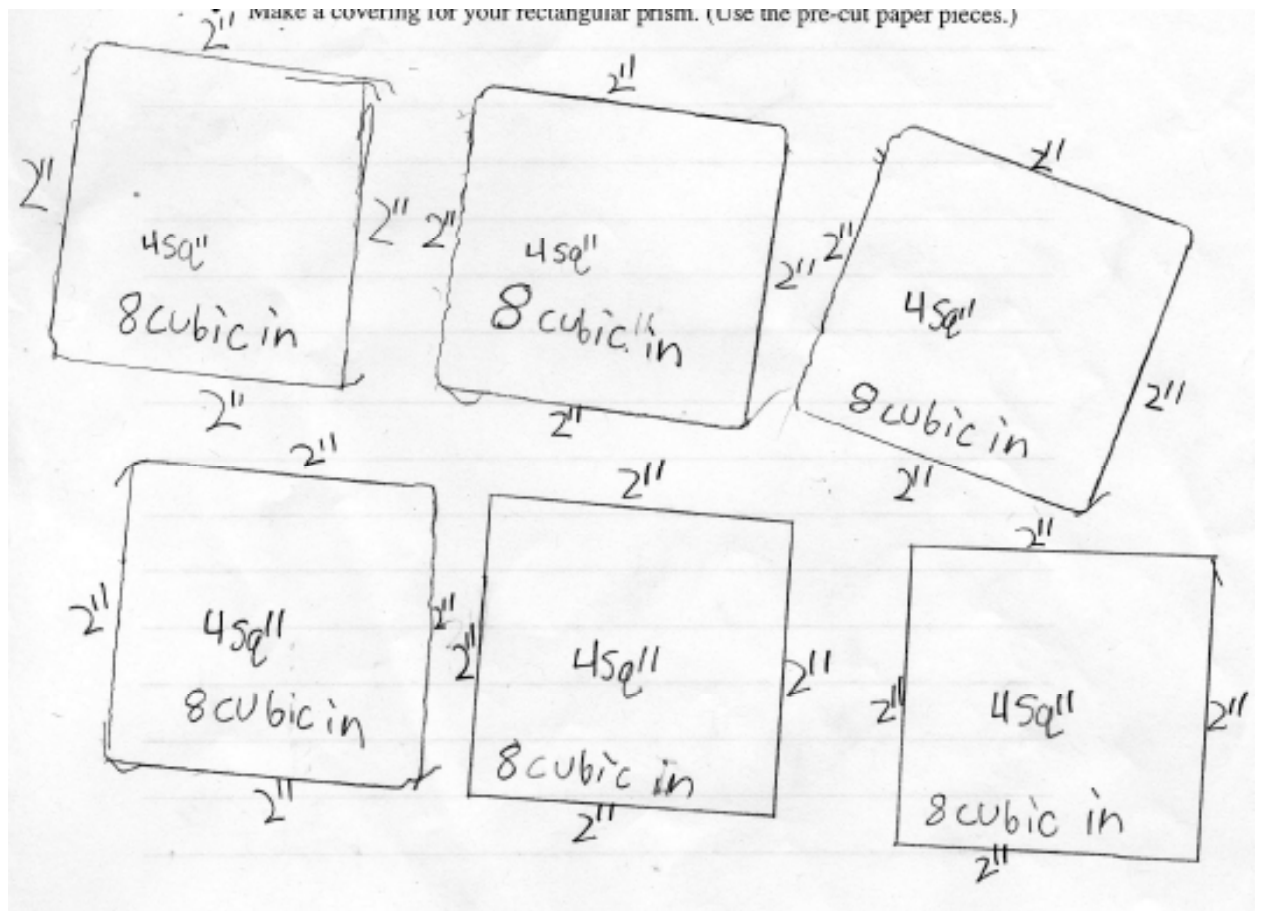 Make a covering for your rectangular prism. (Use the pre-cut paper pieces.)
2"
2"
2"
4sq"
8 cubic in
2"
2"
2"
2"
4sq"
8 cubic in
2"
2"
2"
2"
4sq"
8 cubic in
2"
2"
2"
2"
4sq"
8 cubic in
2"
2"
2"
2"
4sq"
8 cubic in
2"
2"
2"
2"
4sq"
8 cubic in
2"